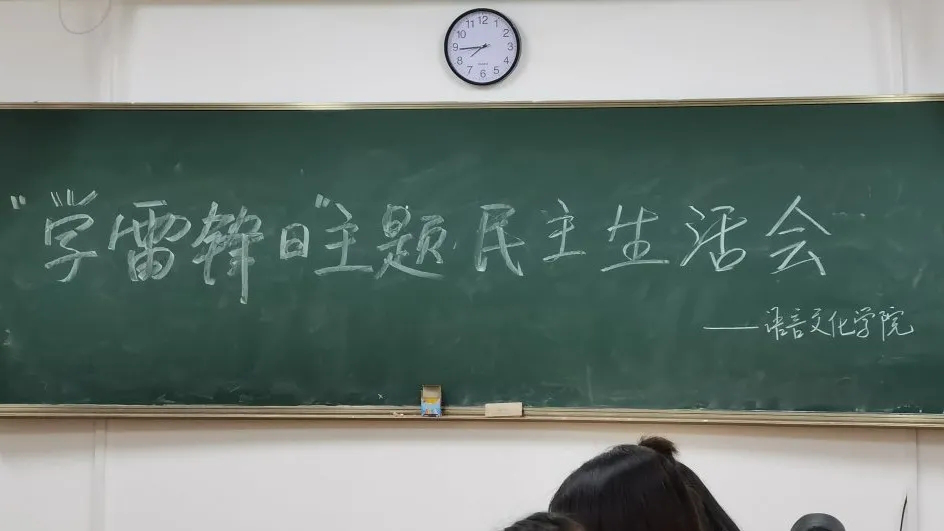 12
1
2
3
4
5
6
7
8
9
10
11
“学雷锋日”主题民主生活会
——语言文化学院